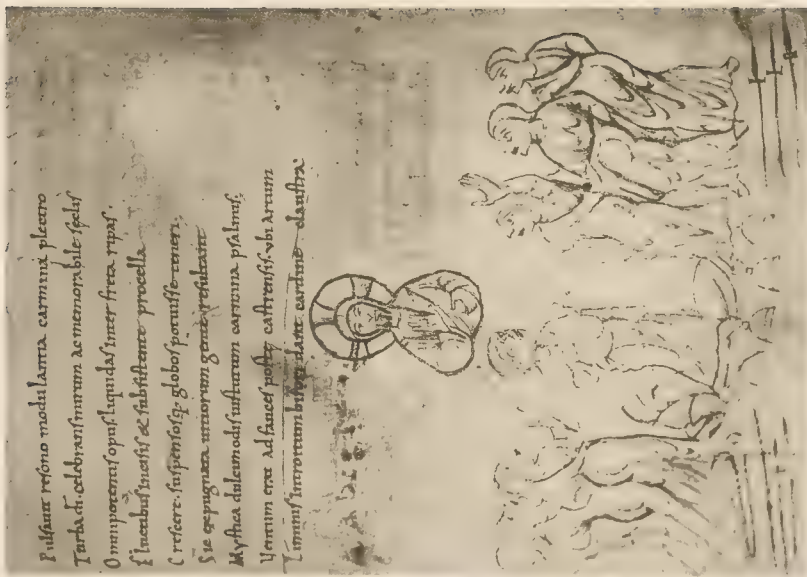 Pulsant resono modulantia carmina plectro
Turba di. celebrans mirum ac memorabile seclis
Omnipotentis opus. liquidas inter freta ripas.
Fluctibus incisis & subsistente procella
Crescere. suspensosq; globos potuisse teneri.
Sic expugnata uitiorum gente resultant
Mystica dulcimodis uirtutum carmina psalmis;
Uentum erat ad fauces porte castrensis. ubi artum
Liminis introitum bifori dant cardine claustra